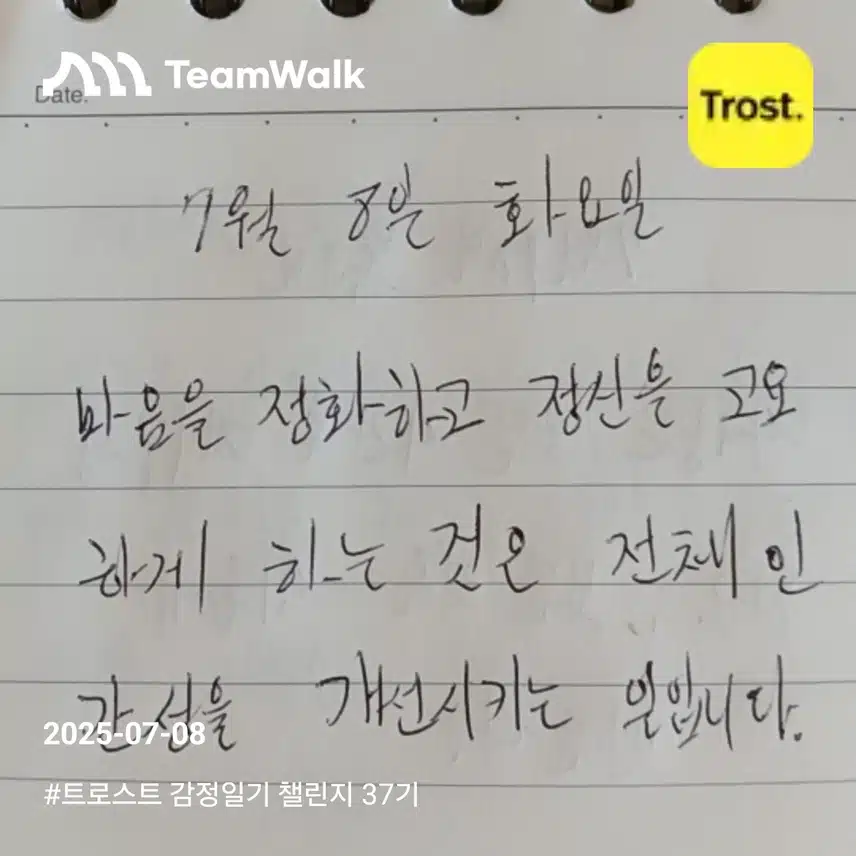 TeamWalk
Date.
Trost.
7월 8일 화요일
마음을 정화하고 정신을 고요
하게 하는 것은 전체 인
간성을 개선시키는 일입니다.
2025-07-08
#트로스트 감정일기 챌린지 37기